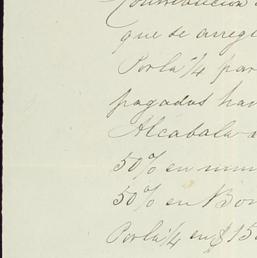 Contribucion
que se arregl
Por la 1/4 par
pagadas has
Alcabala
50% en num
50% en Bon
Por la 1/4 en $ 15